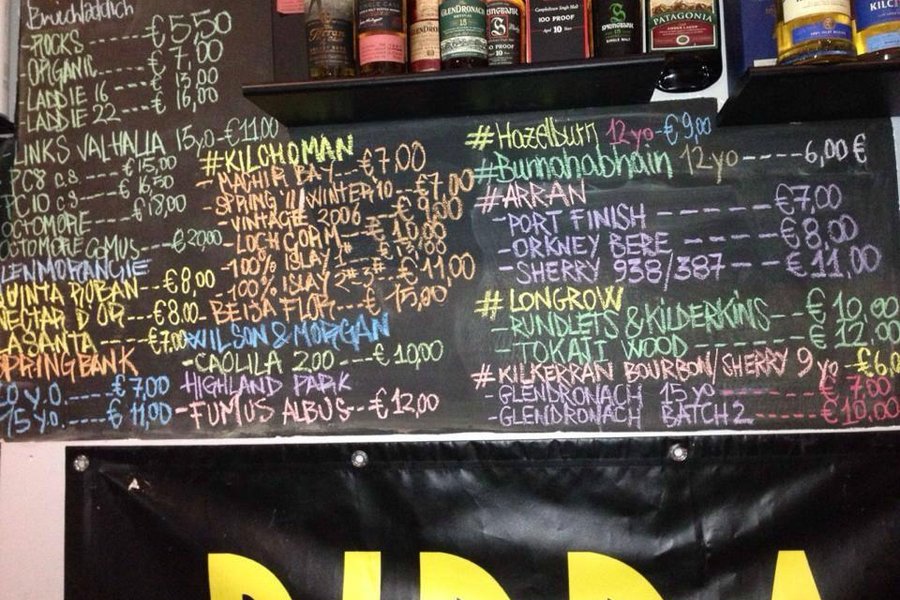 Bruichladdich
-ROCKS-----€5,50
-ORGANIC----€7,00
-LADDIE 16----€13,00
-LADDIE 22---€16,00
-LINKS VALHALLA 15yo-€11,00
PC8 c.s----€15,00
PC10 c.s----€16,50
OCTOMORE----€18,00
OCTOMORE COMUS---€20,00
LENMORANGIE
QUINTA RUBAN--€8,00
NECTAR D'OR---€8,00
LASANTA-----€7,00
SPRINGBANK
10 y.o.----€7,00
15 y.o.----€11,00
#KILCHOMAN
-MACHIR BAY--€7,00
-SPRING '11/WINTER 10--€7,00
-VINTAGE 2006
-LOCH GORM
-100% ISLAY 1
-100% ISLAY 2---€11,00
-BEIJA FLOR---€15,00
WILSON & MORGAN
-CAOLILA 200---€10,00
HIGHLAND PARK
-FUMUS ALBUS---€12,00
#Hazelburn 12yo-€9,00
#Bunnahabhain 12yo----6,00€
#ARRAN
-PORT FINISH------€7,00
-ORKNEY BERE-----€8,00
-SHERRY 938/387---€11,00
#LONGROW
-RUNDLETS & KILDERKINS---€10,00
-TOKAJI WOOD------€12,00
#KILKERRAN BOURBON/SHERRY 9 yo-€6,0
-GLENDRONACH 15yo------€7,00
-GLENDRONACH BATCH 2------€10,00
GLENDRONACH
15
100 PROOF
SPRINGBANK
PATAGONIA
KILC
BIRRA